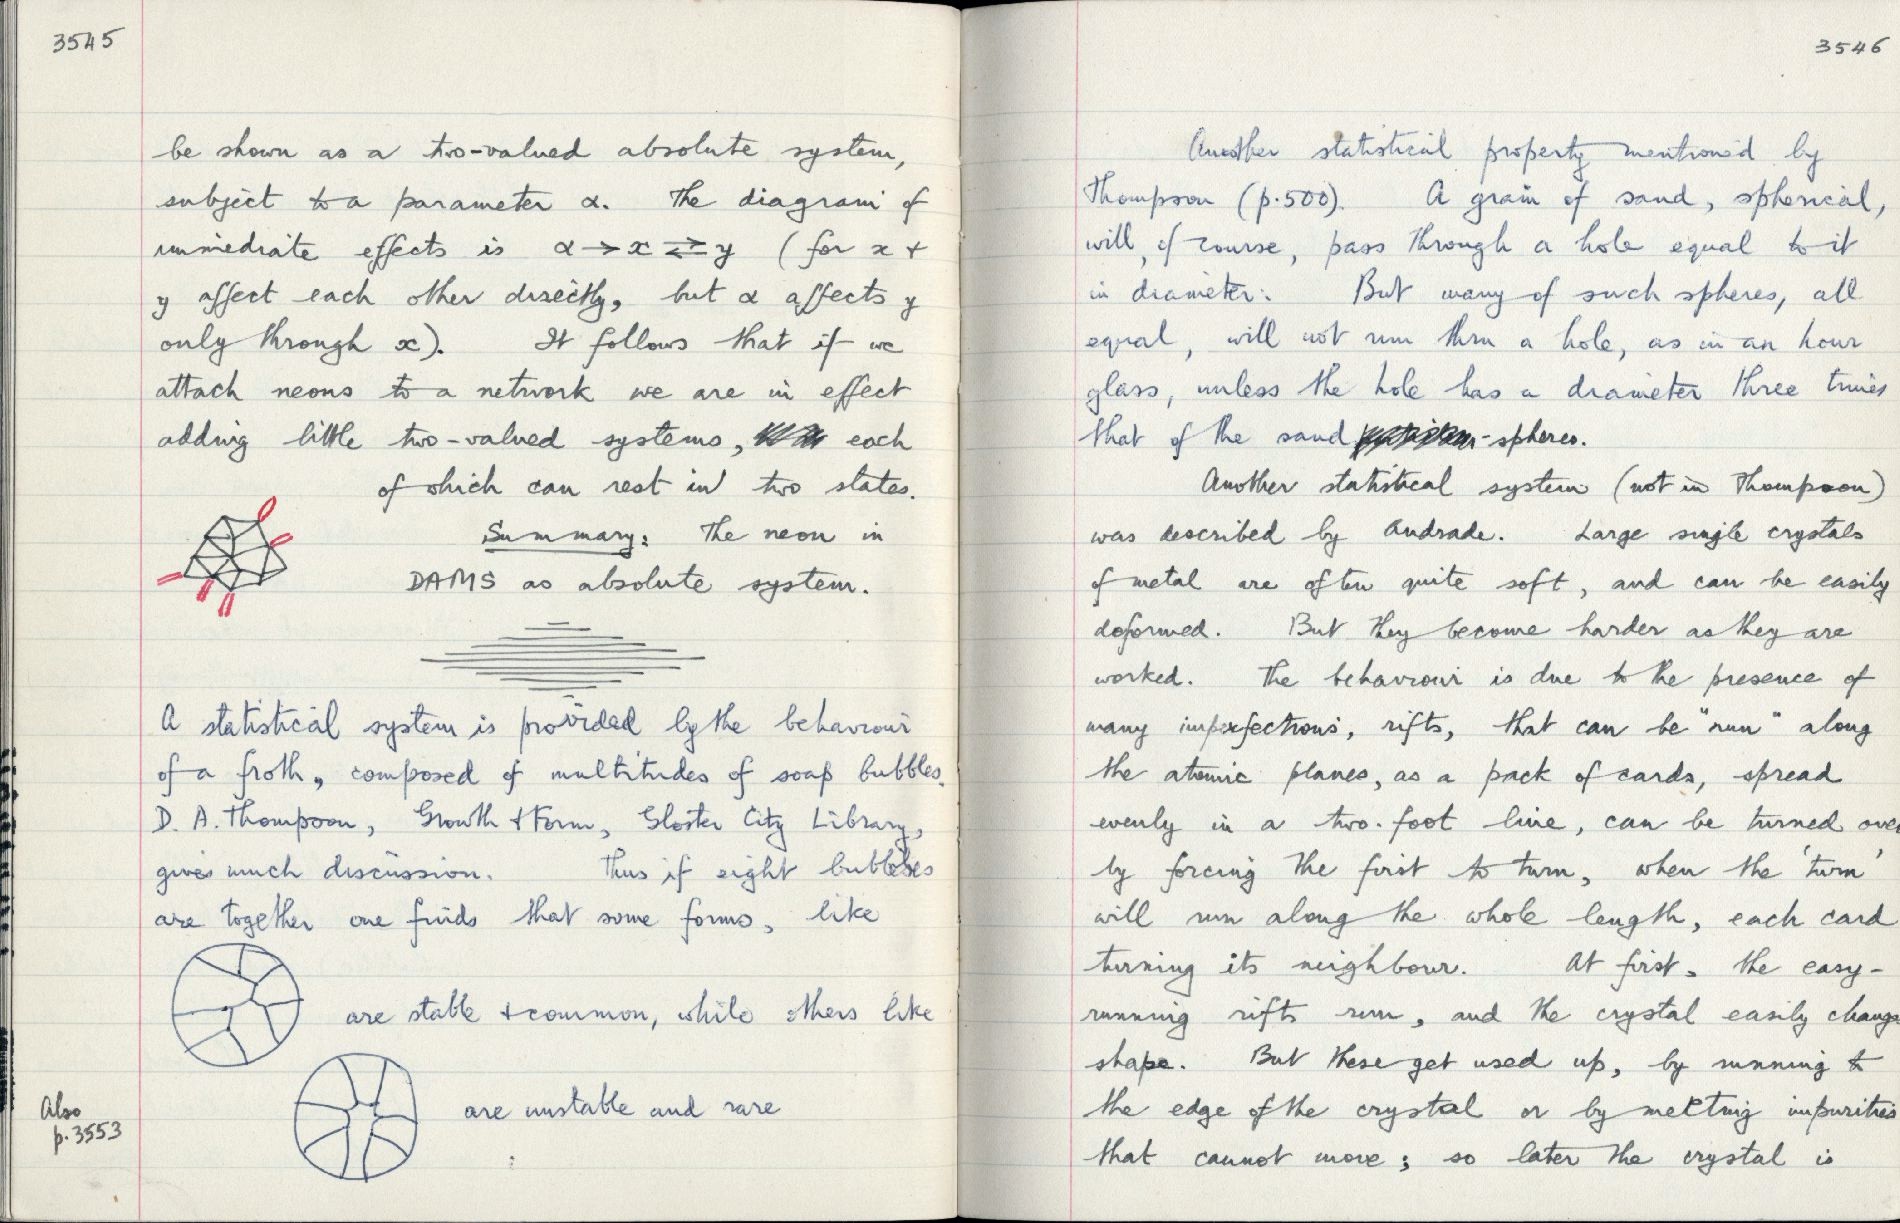 3545
be shown as a two-valued absolute system,
subject to a parameter α. The diagram of
immediate effects is α → x ⇄ y (for x +
y affect each other directly, but α affects y
only through x). It follows that if we
attach neons to a network we are in effect
adding little two-valued systems, each
of which can rest in two states.
Summary: The neon in
DAMS as absolute system.
A statistical system is provided by the behaviour
of a froth, composed of multitudes of soap bubbles.
D. A. Thompson, Growth + Form, Gloster City Library,
gives much discussion. Thus if eight bubbles
are together one finds that some forms, like
are stable + common, while others like
Also
p. 3553
are unstable and rare
3546
Another statistical property mentioned by
Thompson (p. 500). A grain of sand, spherical,
will, of course, pass through a hole equal to it
in diameter. But many of such spheres, all
equal, will not run thru a hole, as in an hour
glass, unless the hole has a diameter three times
that of the sand -spheres.
Another statistical system (not in Thompson)
was described by Andrade. Large single crystals
of metal are often quite soft, and can be easily
deformed. But they become harder as they are
worked. The behaviour is due to the presence of
many imperfections, rifts, that can be "run" along
the atomic planes, as a pack of cards, spread
evenly in a two-foot line, can be turned over
by forcing the first to turn, when the 'turn'
will run along the whole length, each card
turning its neighbour. At first, the easy-
running rifts run, and the crystal easily change
shape. But these get used up, by running to
the edge of the crystal or by meeting impurities
that cannot move; so later the crystal is